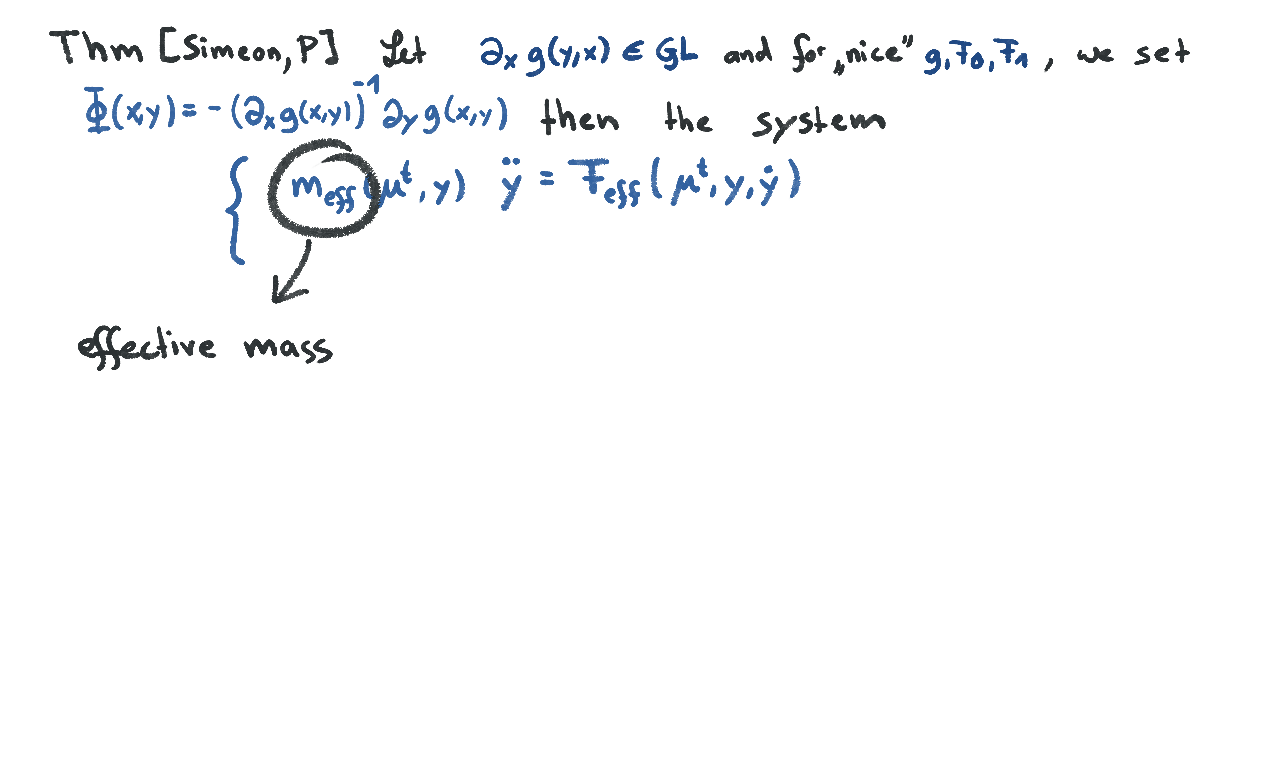 Thm [Simeon, P] Let ∂ₓ g(y,x) ∈ GL and for „nice" g, F₀, F₁, we set
Φ(x,y) = - (∂ₓ g(x,y))⁻¹ ∂ᵧ g(x,y) then the system
{ m_eff(μᵗ, y) ÿ = F_eff(μᵗ, y, ẏ)
effective mass